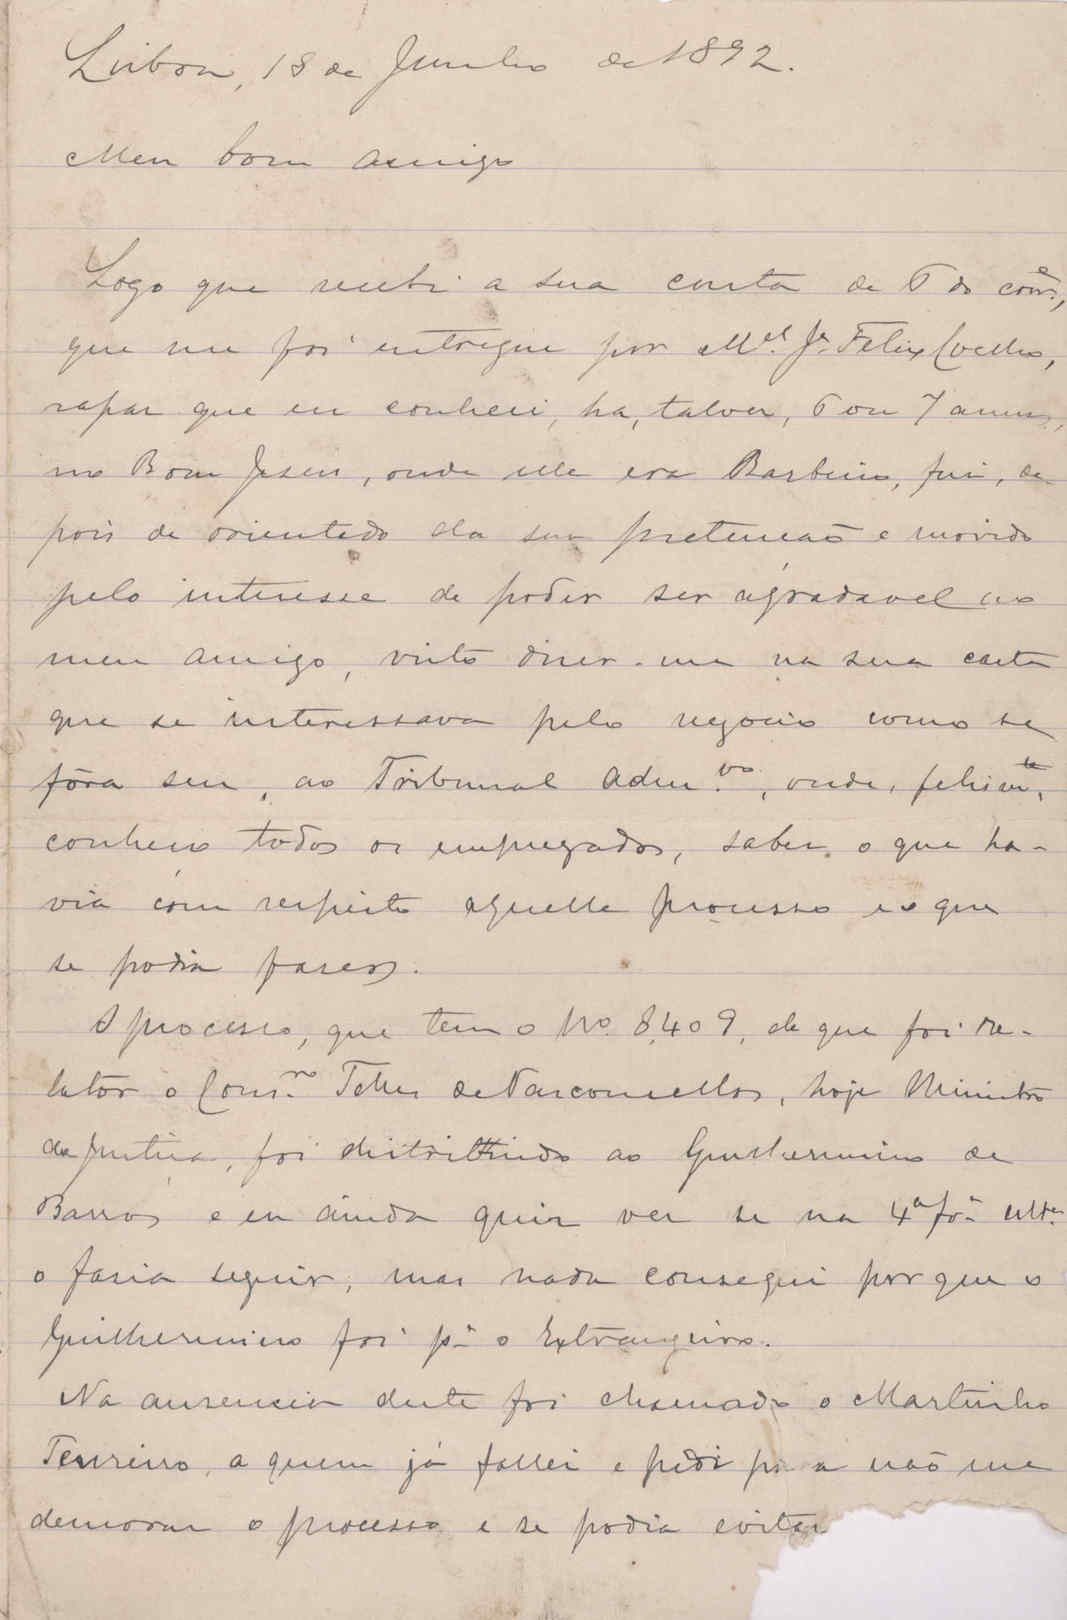 Lisboa, 18 de Junho de 1892.
Meu bom amigo
Logo que recebi a sua carta de 6 do corr.e,
que me foi entregue por M.el J.e Felix Coelho,
rapaz que eu conheci, ha, talvez, 6 ou 7 annos,
no Bom Jesus, onde elle era Barbeiro, fui, de
pois de orientado da sua pretenção e movido
pelo interesse de poder ser agradavel ao
meu amigo, visto dizer-me na sua carta
que se interessava pelo negocio como se
fôra seu, ao Tribunal Adm.vo, onde, felizm.te,
conheço todos os empregados, saber o que ha-
via com respeito aquelle processo e o que
se podia fazer.
O processo, que tem o No. 8,409, de que foi re-
lator o Cons.ro Telles de Vasconcellos, hoje Ministro
da Justiça, foi distribuido ao Guilhermino de
Barros e eu ainda quiz ver se na 4ª fr.a ult.a
o fazia seguir, mas nada consegui por que o
Guilhermino foi p.a o Extrangeiro.
Na ausencia deste foi chamado o Martinho
Tenreiro, a quem já fallei e pedi para não me
demorar o processo e se podia evitar